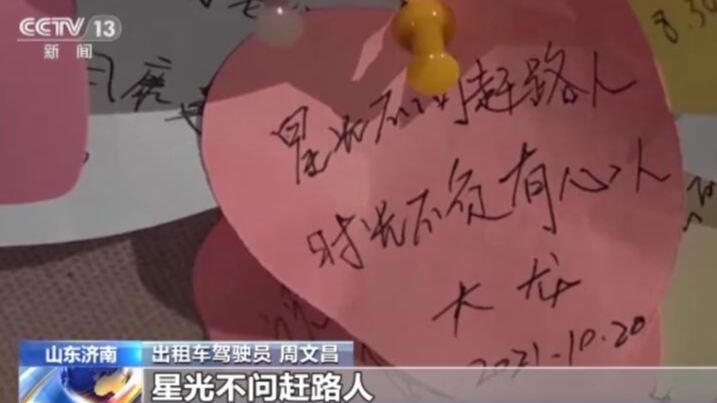 CCTV 13
新闻
8.30
星光不问赶路人
时光不负有心人
大龙
2021.10.20
山东济南
出租车驾驶员 周文昌
星光不问赶路人